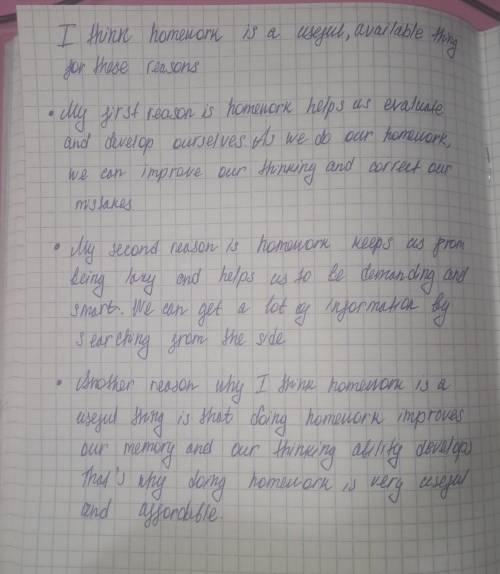 I think homework is a useful, available thing
for these reasons
• My first reason is homework helps us evaluate
and develop ourselves. As we do our homework,
we can improve our thinking and correct our
mistakes
• My second reason is homework keeps us from
being lazy and helps us to be demanding and
smart. We can get a lot of information by
searching from the side
• Another reason why I think homework is a
useful thing is that doing homework improves
our memory and our thinking ability develops
That's why doing homework is very useful
and affordable.